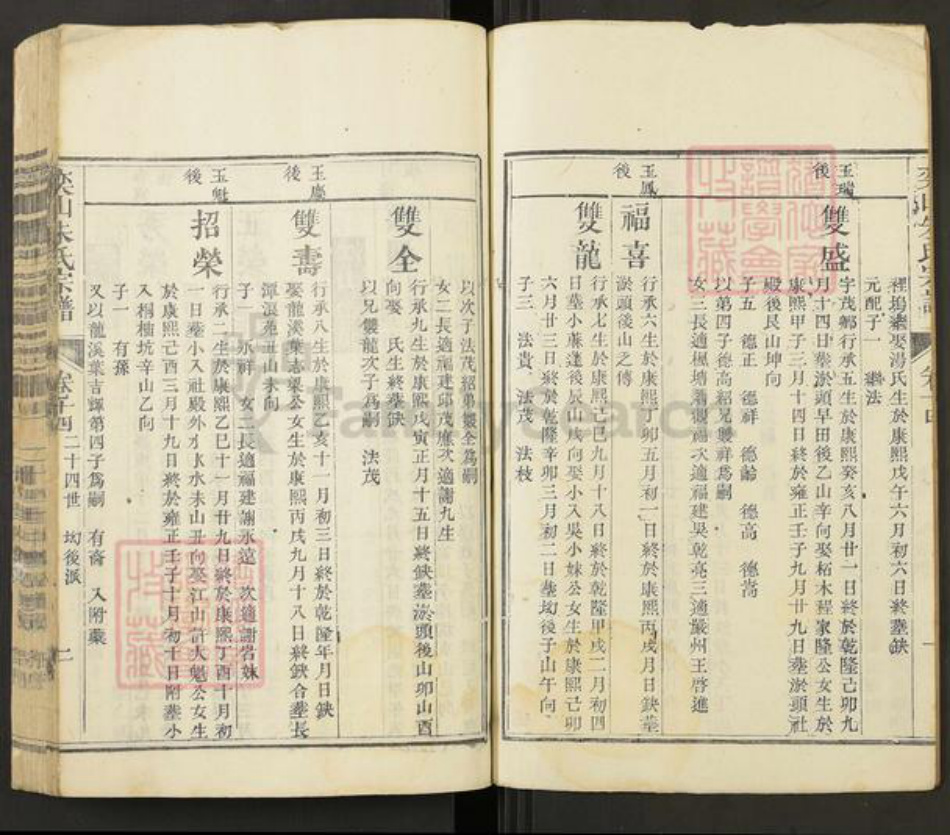 裡塢𦵏娶湯氏生於康熙戊午六月初六日終𦵏缺
元配子一　繼法
玉瑞後
雙盛
字茂鄉行承五生於康熙癸亥八月廿一日終於乾隆己卯九
月十四日𦵏淤頭早田後乙山辛向娶柘木程家隆公女生於
康熙甲子三月十四日終於雍正壬子九月廿九日𦵏淤頭社
殿後艮山坤向
子五　德正　德祥　德齡　德高　德嵩
以第四子德高紹兄雙祥爲嗣
女三長適樫塘着觀福次適福建吴乾亮三適嚴州王啓進
玉鳳後
福喜
行承六生於康熙丁卯五月初一日終於康熙丙戌月日缺𦵏
淤頭後山之傳
雙龍
行承七生於康熙己巳九月十八日終於乾隆甲戌二月初四
日𦵏小蓀蓬後辰山戌向娶小入吳小妹公女生於康熙己卯
六月廿三日終於乾隆辛卯三月初二日𦵏坳後子山午向
子三　法貴　法茂　法枝
以次子法茂紹弟雙全爲嗣
女二長適福建邱茂應次適謝九生
雙全
行承九生於康熙戊寅正月十五日終缺𦵏淤頭後山卯山酉
向娶　氏生終𦵏缺
以兄雙龍次子爲嗣　法茂
玉慶後
雙壽
行承八生於康熙乙亥十一月初三日終於乾隆年月日缺
娶龍溪葉志望公女生於康熙丙戌九月十八日終缺合𦵏長
潭浪苑丑山未向
子一　永祥　女二長適福建謝永遠　次適謝岩妹
玉魁後
招榮
行承二生於康熙乙巳十一月廿九日終於康熙丁酉十月初
一日𦵏小入社殿外水口水未山丑向娶江山許大魁公女生
於康熙己酉三月十九日終於雍正壬子十月初十日附𦵏小
入桐柚坑辛山乙向
子一　有孫
又以龍溪葉吉輝第四子爲嗣　有裔　入附𦵏
奕山朱氏宗譜　卷十四　二十四世　坳後派　二